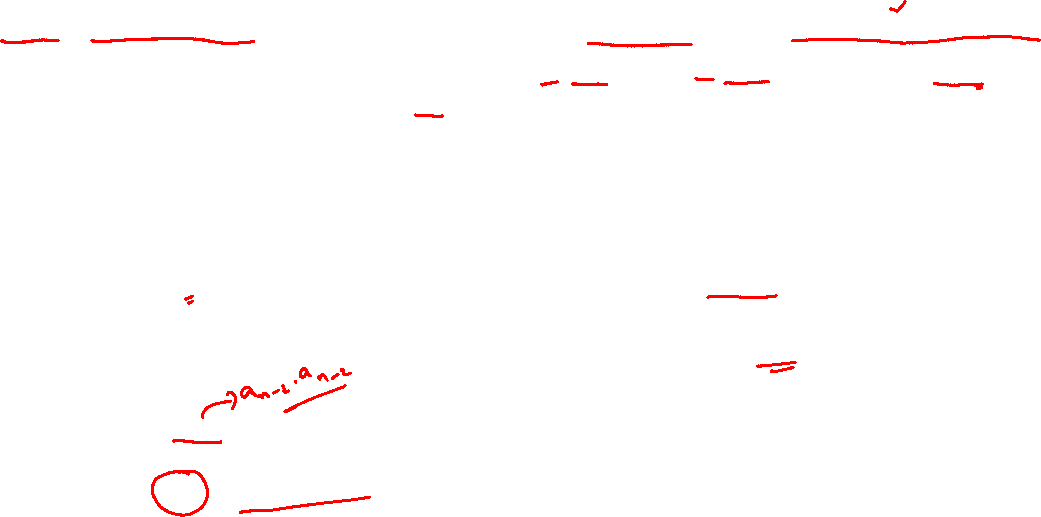 a_{n-2} \cdot a_{n-2}